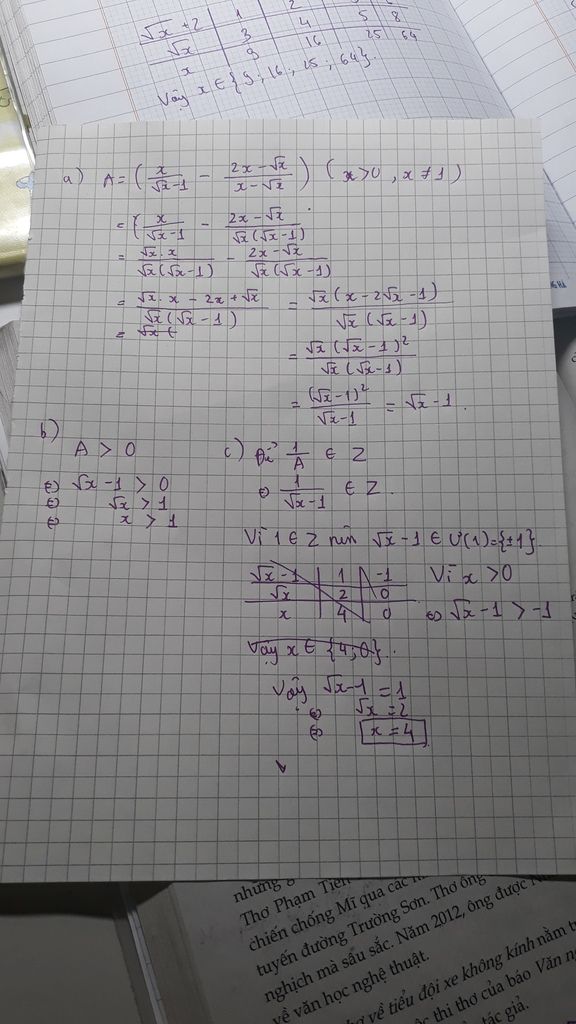 √x + 2 | 1 | 2
√x | 3 | 4 | 5 | 8
x | 9 | 16 | 25 | 64
Vậy x ∈ {9; 16; 25; 64}.
a) A = (x/(√x-1) - (2x-√x)/(x-√x)) (x>0, x≠1)
= (x/(√x-1) - (2x-√x)/(√x(√x-1))
= (√x.x)/(√x(√x-1)) - (2x-√x)/(√x(√x-1))
= (√x.x - 2x + √x)/(√x(√x-1)) = √x(x-2√x-1)/(√x(√x-1))
= √x(
= √x(√x-1)²/(√x(√x-1))
= (√x-1)²/(√x-1) = √x-1.
b)
A > 0
⇔ √x-1 > 0
⇔ √x > 1
⇔ x > 1
c) Để 1/A ∈ Z
⇔ 1/(√x-1) ∈ Z.
Vì 1 ∈ Z nên √x-1 ∈ Ư(1)={±1}
√x-1 | 1 | -1
√x | 2 | 0
x | 4 | 0
Vì x > 0
⇔ √x-1 > -1
Vậy x ∈ {4; 0}.
Vậy √x-1 = 1
⇔ √x = 2
⇔ x = 4
những
Thơ Phạm Tiến
chiến chống Mĩ qua các
tuyến đường Trường Sơn. Thơ ông
nghịch mà sâu sắc. Năm 2012, ông được
về văn học nghệ thuật.
về tiểu đội xe không kính nằm
thi thơ của báo Văn
tác giả.